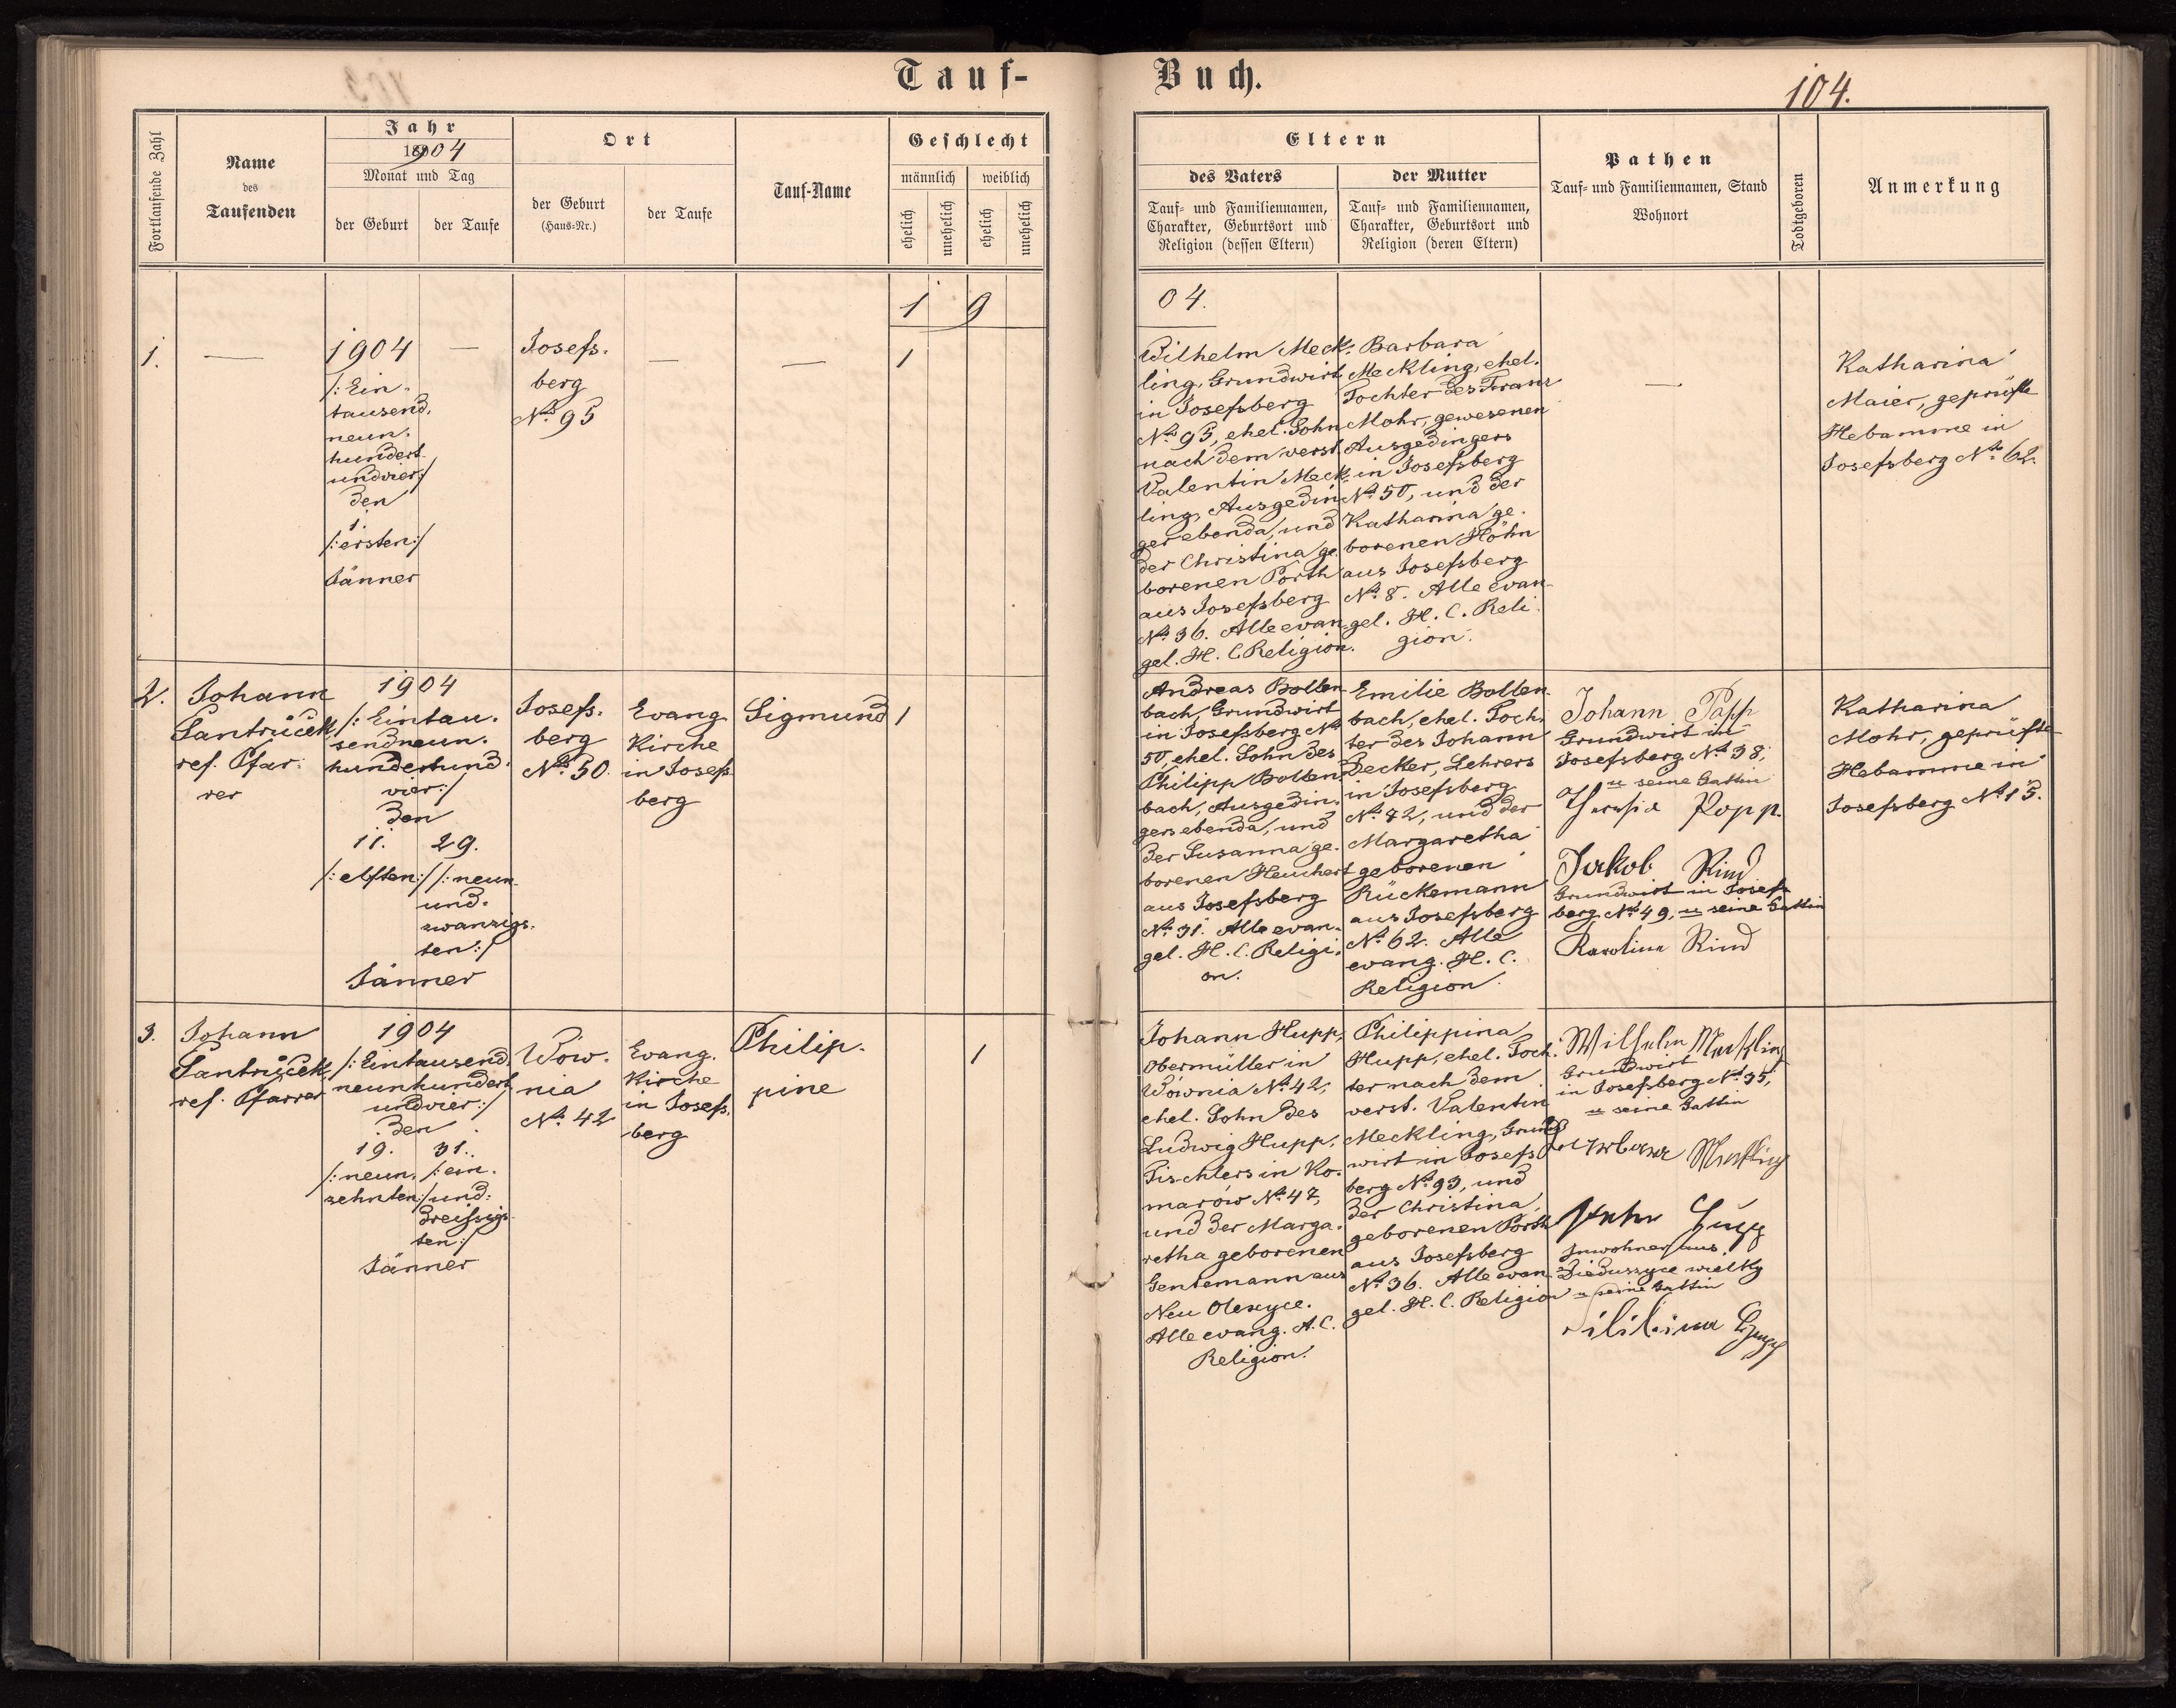 Tauf-
Buch.
104.
Fortlaufende Zahl
Name
des
Taufenden
Jahr
1904
Monat und Tag
der Geburt
der Taufe
Ort
der Geburt
(Haus-Nr.)
der Taufe
Tauf-Name
Geschlecht
männlich
weiblich
ehelich
unehelich
ehelich
unehelich
Eltern
des Vaters
Tauf- und Familiennamen,
Charakter, Geburtsort und
Religion (dessen Eltern)
der Mutter
Tauf- und Familiennamen,
Charakter, Geburtsort und
Religion (deren Eltern)
Pathen
Tauf- und Familiennamen, Stand
Wohnort
Todtgeboren
Anmerkung
1 9
04.
1.
—
1904
/: Ein-
tausend,
neun-
hundert
undvier:/
den
1.
/: ersten:/
Jänner
—
Josefs-
berg
No. 95
—
—
1
Wilhelm Meck-
ling, Grundwirt
in Josefsberg
No 95, ehel. Sohn
nach dem verst.
Valentin Meck-
ling, Ausgedin-
ger ebenda, und
der Christina ge-
borenen Porth
aus Josefsberg
No 36. Alle evan-
gel. H. C. Religion.
Barbara
Meckling, ehel.
Tochter des Franz
Mohr, gewesenen
Ausgedingers
in Josefsberg
No 50, und der
Katharina ge-
borenen Höhn
aus Josefsberg
No 8. Alle evan-
gel. H. C. Reli-
gion.
—
Katharina
Maier, geprüfte
Hebamme in
Josefsberg No 62.
2.
Johann
Santrůček
ref. Pfar-
rer
1904
/: Eintau-
sendneun-
hundertund-
vier:/
den
11. 29.
/: elften:/ /: neun-
und-
zwanzigs-
ten:/
Jänner
Josefs-
berg
No. 50.
Evang.
Kirche
in Josefs-
berg
Sigmund
1
Andreas Bollen-
bach, Grundwirt
in Josefsberg No
50, ehel. Sohn des
Philipp Bollen-
bach, Ausgedin-
gers ebenda, und
der Susanna ge-
borenen Heuchert
aus Josefsberg
No 31. Alle evan-
gel. H. C. Religi-
on.
Emilie Bollen-
bach, ehel. Toch-
ter des Johann
Decker, Lehrers
in Josefsberg
No 72, und der
Margaretha
geborenen
Rückemann
aus Josefsberg
No 62. Alle
evang. H. C.
Religion.
Johann Popp
Grundwirt in
Josefsberg No 38,
u seine Gattin
Theresia Popp.
Jakob Rind
Grundwirt in Josefs-
berg No 49, u seine Gattin
Karolina Rind
Katharina
Mohr, geprüfte
Hebamme in
Josefsberg No 13.
3.
Johann
Santrůček
ref. Pfarrer
1904
/: Eintausend-
neunhundert
undvier:/
den
19. 31.
/: neun- /: ein-
zehnten:/ und-
dreissigs-
ten:/
Jänner
Wow-
nia
No. 42
Evang.
Kirche
in Josefs-
berg
Philip-
pine
1
Johann Hupp,
Obermüller in
Wownia No 42,
ehel. Sohn des
Ludwig Hupp,
Tischlers in Ko-
marów No 47,
und der Marga-
retha geborenen
Gentemann aus
Neu Olexyce.
Alle evang. A. C.
Religion.
Philippina
Hupp, ehel. Toch-
ter nach dem
verst. Valentin
Meckling, Grund-
wirt in Josefs-
berg No 93, und
der Christina,
geborenen Porth
aus Josefsberg
No 36. Alle evan-
gel. H. C. Religion
Wilhelm Meckling
Grundwirt
in Josefsberg No 95,
u seine Gattin
Barbara Meckling
Hupp
Inwohner aus
Dieduszyce wielky
u seine Gattin
Hupp